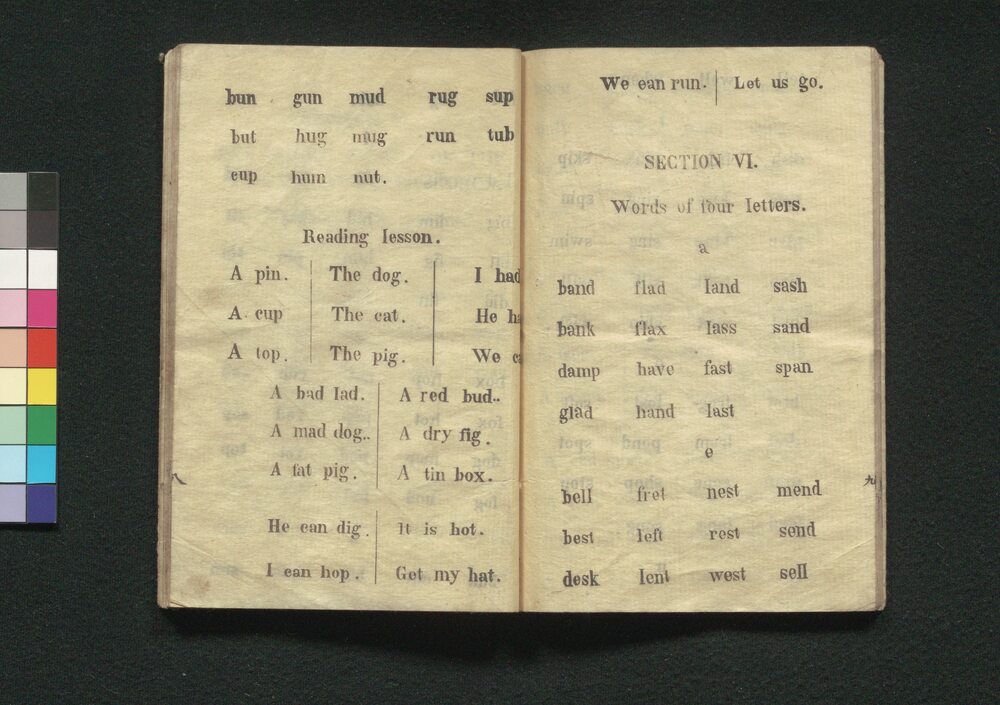 bun gun mud rug sup
but hug mug run tub
cup hum nut.
Reading lesson.
A pin. The dog. I had
A cup The cat. He
A top. The pig. We
A bad lad. A red bud.
A mad dog. A dry fig.
A fat pig. A tin box.
He can dig. It is hot.
I can hop. Get my hat.
八
We can run. Let us go.
SECTION VI.
Words of four letters.
a
band flad land sash
bank flax lass sand
damp have fast span
glad hand last
e
bell fret nest mend
best left rest send
desk lent west sell
九